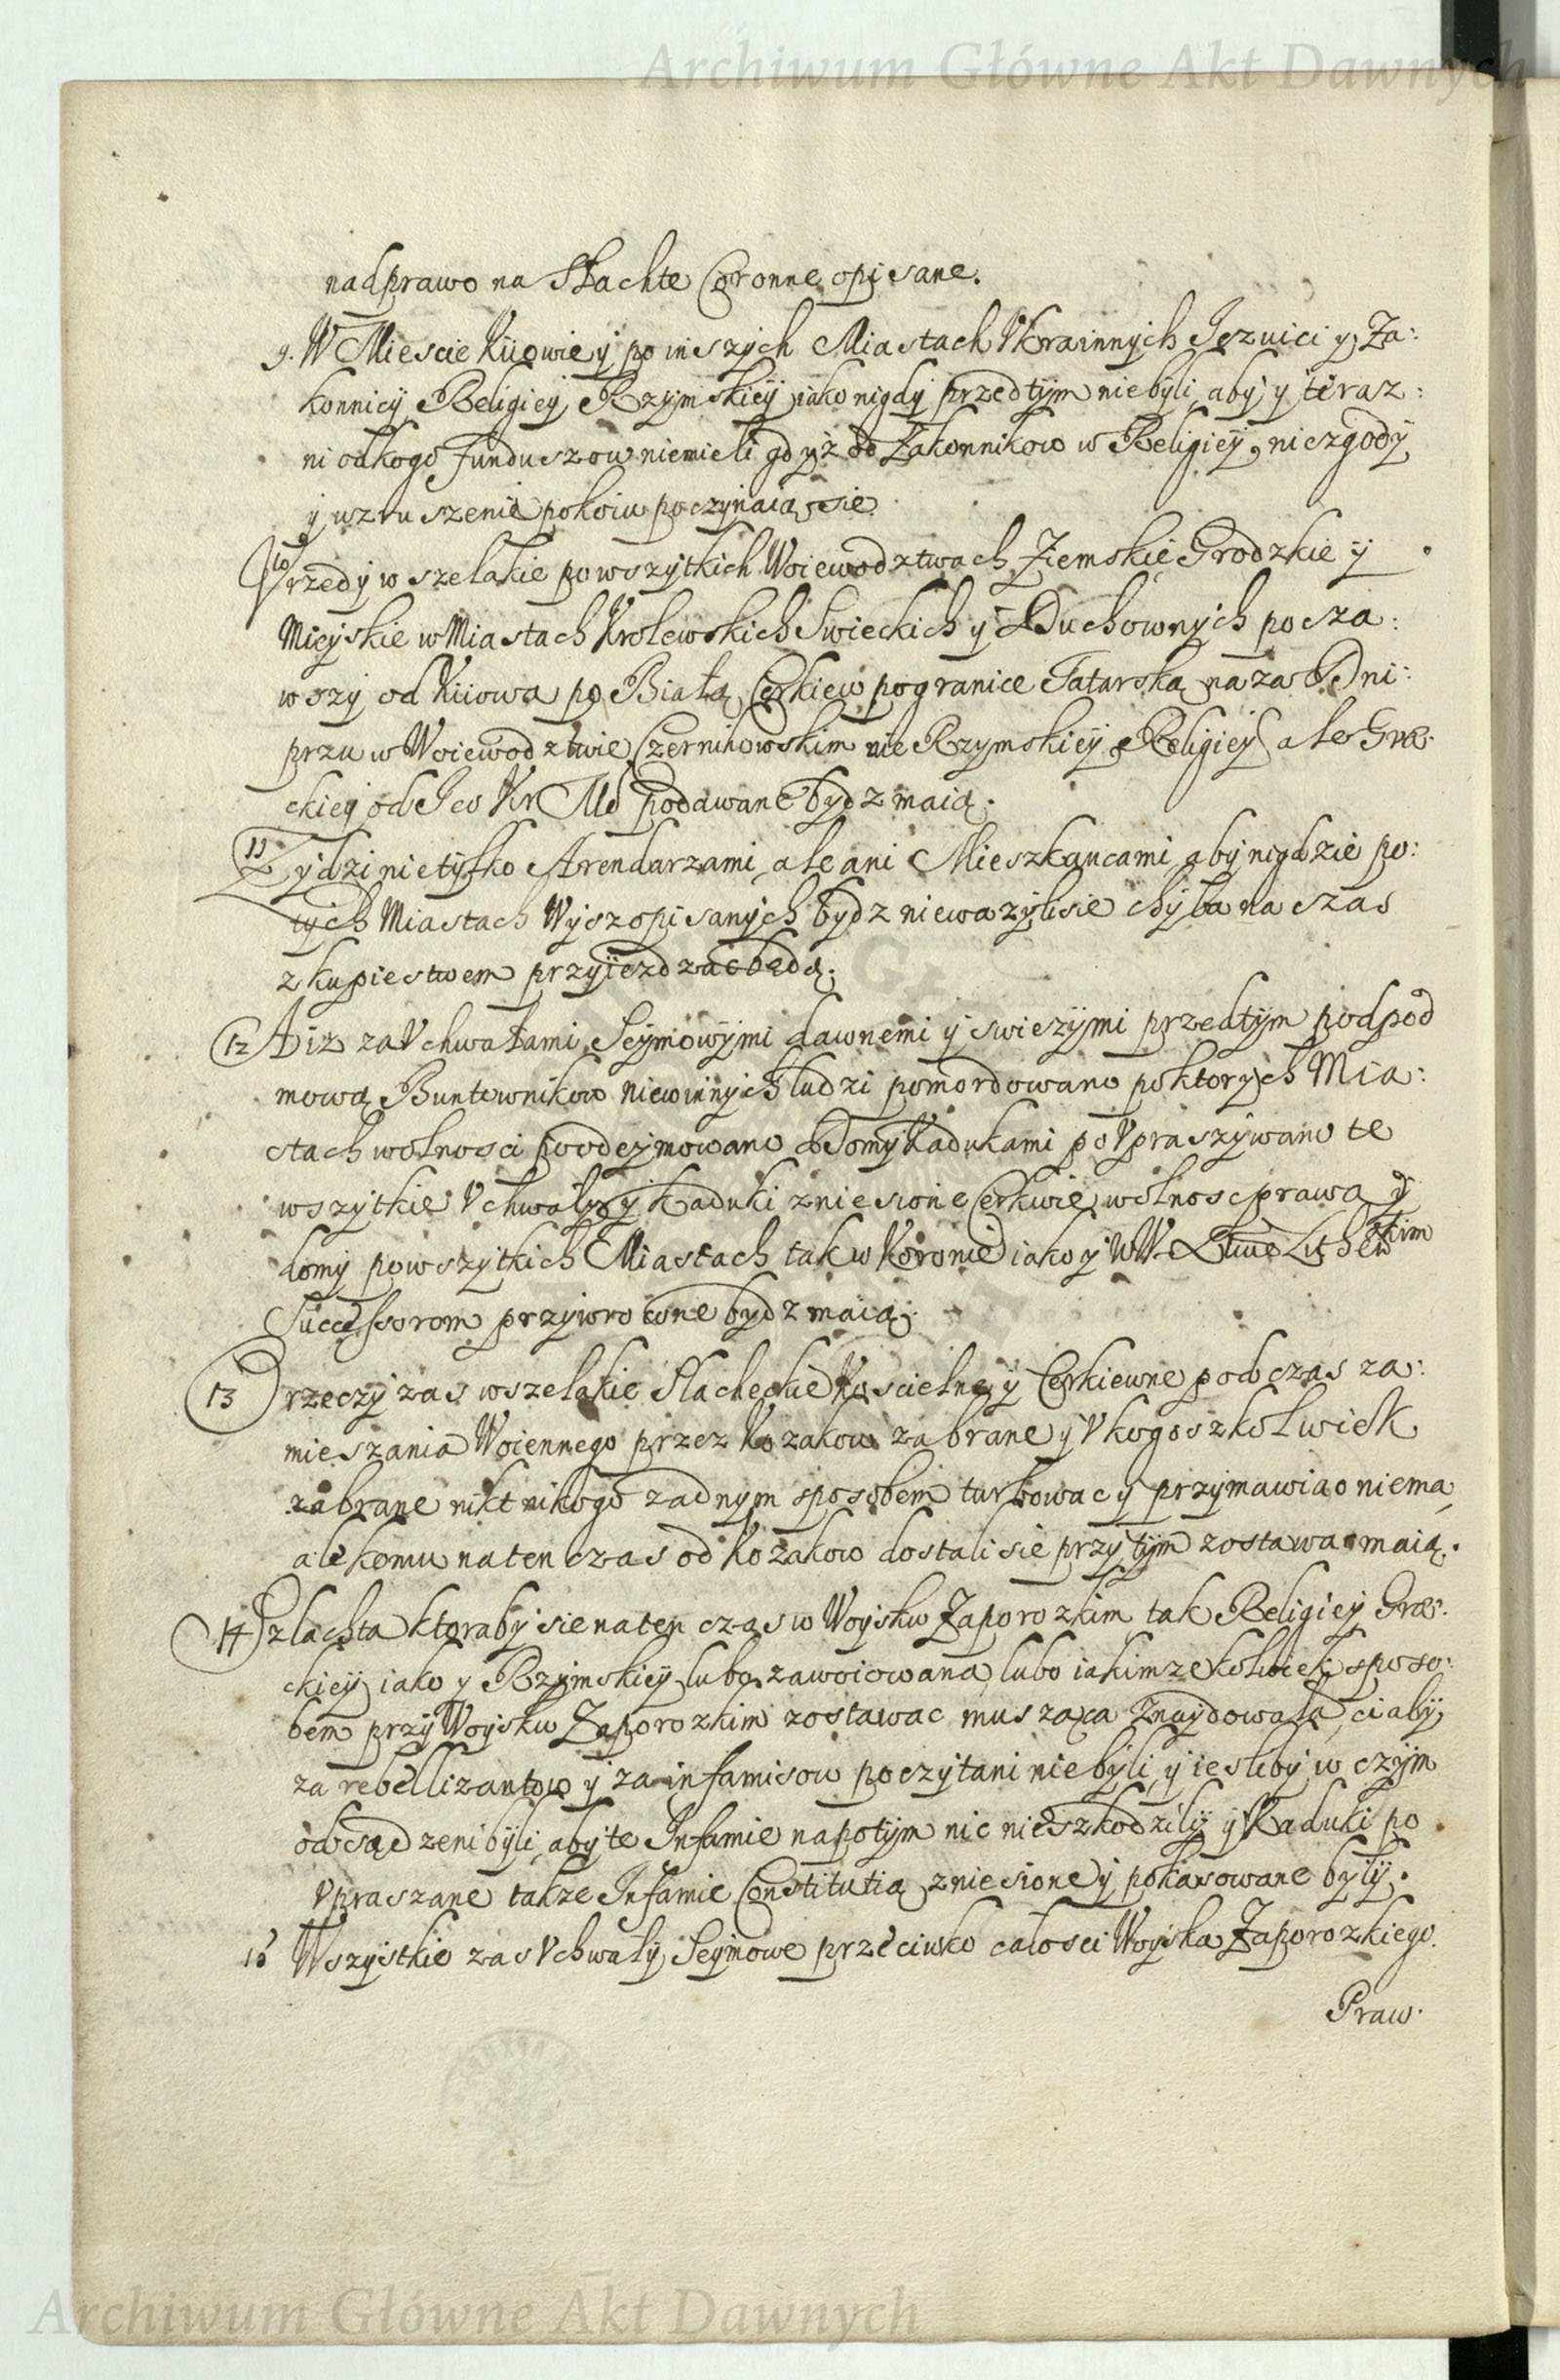 Archiwum Główne Akt Dawnych
nad prawo na Słachte Coronne opisane.
9. W Miescie Kiiowie y po inszych Miastach Vkrainnych Jezuici y Za:
konnicy Religiey Rzymskiey iako nigdy przedtym niebyli, aby y teraz:
ni odkogo funduszow niemieli gdyż od Zakonnikow w Religiey, niezgody
y wzruszenie pokoiu poczynaią sie.
10 Vrzedy wszelakie po wszytkich Woiewodztwach Ziemskie Grodzkie y
Mieyskie w Miastach Krolewskich Swieckich y Duchownych pocza:
wszy od Kiiowa po Białą Cerkiew po granice Tatarską na za Dni:
przu w Woiewodztwie Czernihowskim nie Rzymskiey Religiey ale Græ:
ckiey od Jeo Kr Mo podawane bydz maią.
11 Zydzi nie tylko Arendarzami, ale ani Mieszkancami aby nigdzie po:
tych Miastach Wyszopisanych bydz niewazyli sie chyba na czas
z kupiestwem przyiezdzac będą.
12 A iz za Vchwałami Seymowymi dawnemi y swiezymi przedtym pod pod
mową Buntownikow niewinnych ludzi pomordowano po ktorych Mia:
stach wolnosci poodeymowano Domy Kadukami po Vpraszywano te
wszytkie Vchwały y Kaduki zniesione Cerkwie, wolnosc prawa y
domy po wszytkich Miastach tak w Koronie iako y W W. X. Litewskim
Successorom przywrocone bydz maią.
13 rzeczy zas wszelakie Slacheckie Koscielne y Cerkiewne podczas za:
mieszania Woiennego przez Kozakow zabrane y V kogoszkolwiek
zabrane nikt nikogo zadnym sposobem turbowac y przymawiac niema,
ale komu na ten czas od Kozakow dostali sie przy tym zostawac maią.
14 Szlachta ktoraby sie na ten czas w Woysku Zaporozkim tak Religiey Græ:
ckiey iako y Rzymskiey lubo zawoiowana, lubo iakimzekolwiek sposo:
bem przy Woysku Zaporozkim zostawac musząca znaydowała, ci aby
za rebellizantow y za infamisow poczytani niebyli, y iesliby w czym
odsądzeni byli, aby te Infamie napotym nic nieszkodzily y Kaduki po
vpraszane takze Infamie Constitutią zniesione y pokasowane były.
15 Wszystkie zas Vchwały Seymowe przeciwko całosci Woyska Zaporozkiego.
Praw.
Archiwum Główne Akt Dawnych